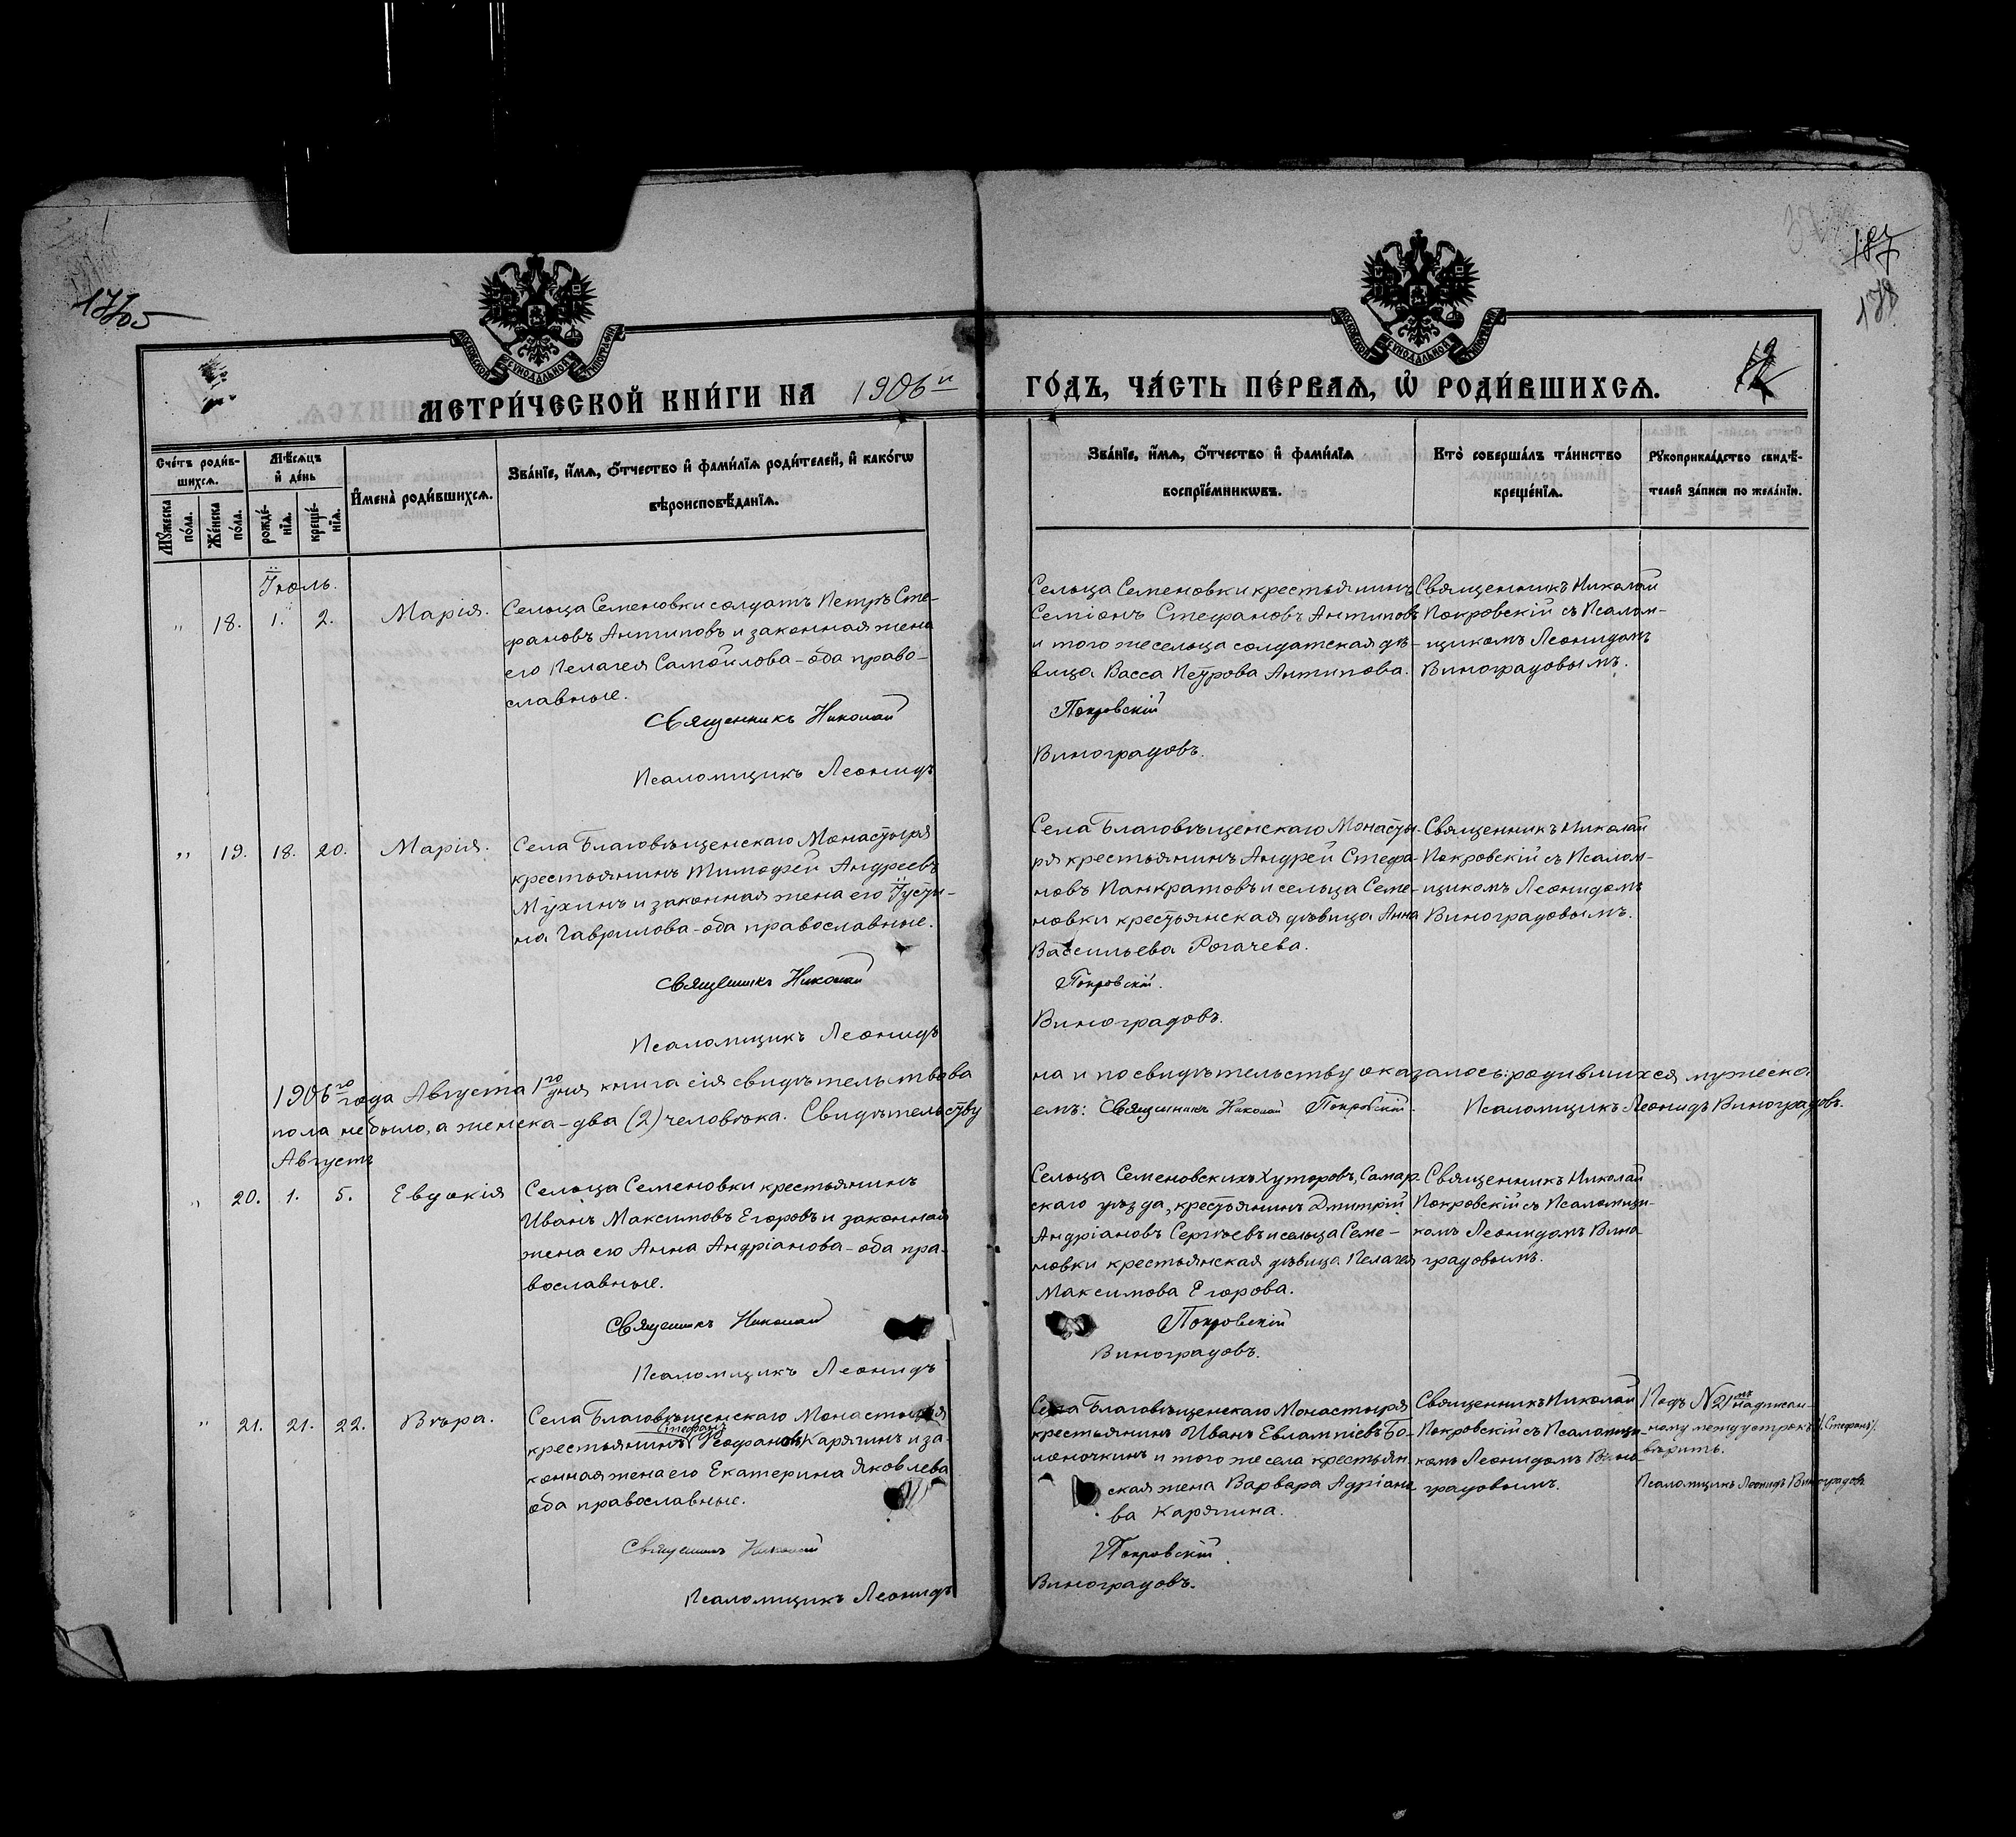 17/05
187
178
12
МОСКОВСКОЙ СѴНОДАЛЬНОЙ ТИПОГРАФІИ
МОСКОВСКОЙ СѴНОДАЛЬНОЙ ТИПОГРАФІИ
МЕТРИ́ЧЕСКОЙ КНИ́ГИ НА 1906й ГО́ДЪ, ЧА́СТЬ ПЕ́РВАѦ, Ѡ҆ РОДИ́ВШИХСѦ.
Сче́тъ роди́в-
шихсѧ.
Мꙋ́жеска по́ла.
Же́нска по́ла.
Мѣ́сѧцъ
и҆ де́нь
рожде́-
нїѧ.
креще́-
нїѧ.
И҆мена̀ роди́вшихсѧ.
Зва́нїе, и҆́мѧ, ѻ҆́тчество и҆ фами́лїѧ роди́телей, и҆ како́гѡ
вѣроисповѣ́данїѧ.
Зва́нїе, и҆́мѧ, ѻ҆́тчество и҆ фами́лїѧ
воспрїе́мникѡвъ.
Кто̀ соверша́лъ та́инство
креще́нїѧ.
Рꙋкоприкла́дство свидѣ́-
телей за́писи по жела́нїю.
Іюль.
" 18. 1. 2. Марія.
Сельца Семеновки солдатъ Петръ Сте-
фановъ Антиповъ и законная жена
его Пелагея Самойлова - оба право-
славные.
Священникъ Николай
Псаломщикъ Леонидъ
Сельца Семеновки крестьянинъ
Семіонъ Стефановъ Антиповъ
и того же сельца солдатская дѣ-
вица Васса Петрова Антипова.
Покровскій
Виноградовъ.
Священникъ Николай
Покровскій съ Псалом-
щикомъ Леонидомъ
Виноградовымъ.
" 19. 18. 20. Марія.
Села Благовѣщенскаго Монастыря
крестьянинъ Тимофей Андреевъ
Мухинъ и законная жена его Іусти-
на Гаврилова - оба православные.
Священникъ Николай
Псаломщикъ Леонидъ
Села Благовѣщенскаго Монасты-
ря крестьянинъ Андрей Стефа-
новъ Панкратовъ и сельца Семе-
новки крестьянская дѣвица Анна
Васильева Рогачева.
Покровскій.
Виноградовъ.
Священникъ Николай
Покровскій съ Псалом-
щикомъ Леонидомъ
Виноградовымъ.
1906го года Августа 1го дня книга сія свидѣтельствова
на и по свидѣтельству оказалось: родившихся мужеска
пола небыло, а женска - два (2) человѣка. Свидѣтельству
емъ: Священникъ Николай Покровскій. Псаломщикъ Леонидъ Виноградовъ.
Августъ
" 20. 1. 5. Евдокія
Сельца Семеновки крестьянинъ
Иванъ Максимовъ Егоровъ и законная
жена его Анна Андріанова - оба пра-
вославные.
Священникъ Николай
Псаломщикъ Леонидъ
Сельца Семеновскихъ Хуторовъ, Самар-
скаго уѣзда, крестьянинъ Дмитрій
Андріановъ Сергѣевъ и сельца Семе-
новки крестьянская дѣвица Пелагея
Максимова Егорова.
Покровскій
Виноградовъ.
Священникъ Николай
Покровскій съ Псаломщи-
комъ Леонидомъ Вино-
градовымъ.
" 21. 21. 22. Вѣра.
Села Благовѣщенскаго Монастыря
Стефанъ
крестьянинъ Феофановъ Карягинъ и за-
конная жена его Екатерина Яковлева
оба православные.
Священникъ Николай
Псаломщикъ Леонидъ
Села Благовѣщенскаго Монастыря
крестьянинъ Иванъ Евлампіевъ Бо-
лоночкинъ и того же села крестьян-
ская жена Варвара Адріано-
ва Карягина.
Покровскій.
Виноградовъ.
Священникъ Николай
Покровскій съ Псаломщи-
комъ Леонидомъ Вино-
градовымъ.
Подъ №21мъ надписан-
ному между строкъ /Стефанъ/
вѣрить.
Псаломщикъ Леонидъ Виноградовъ